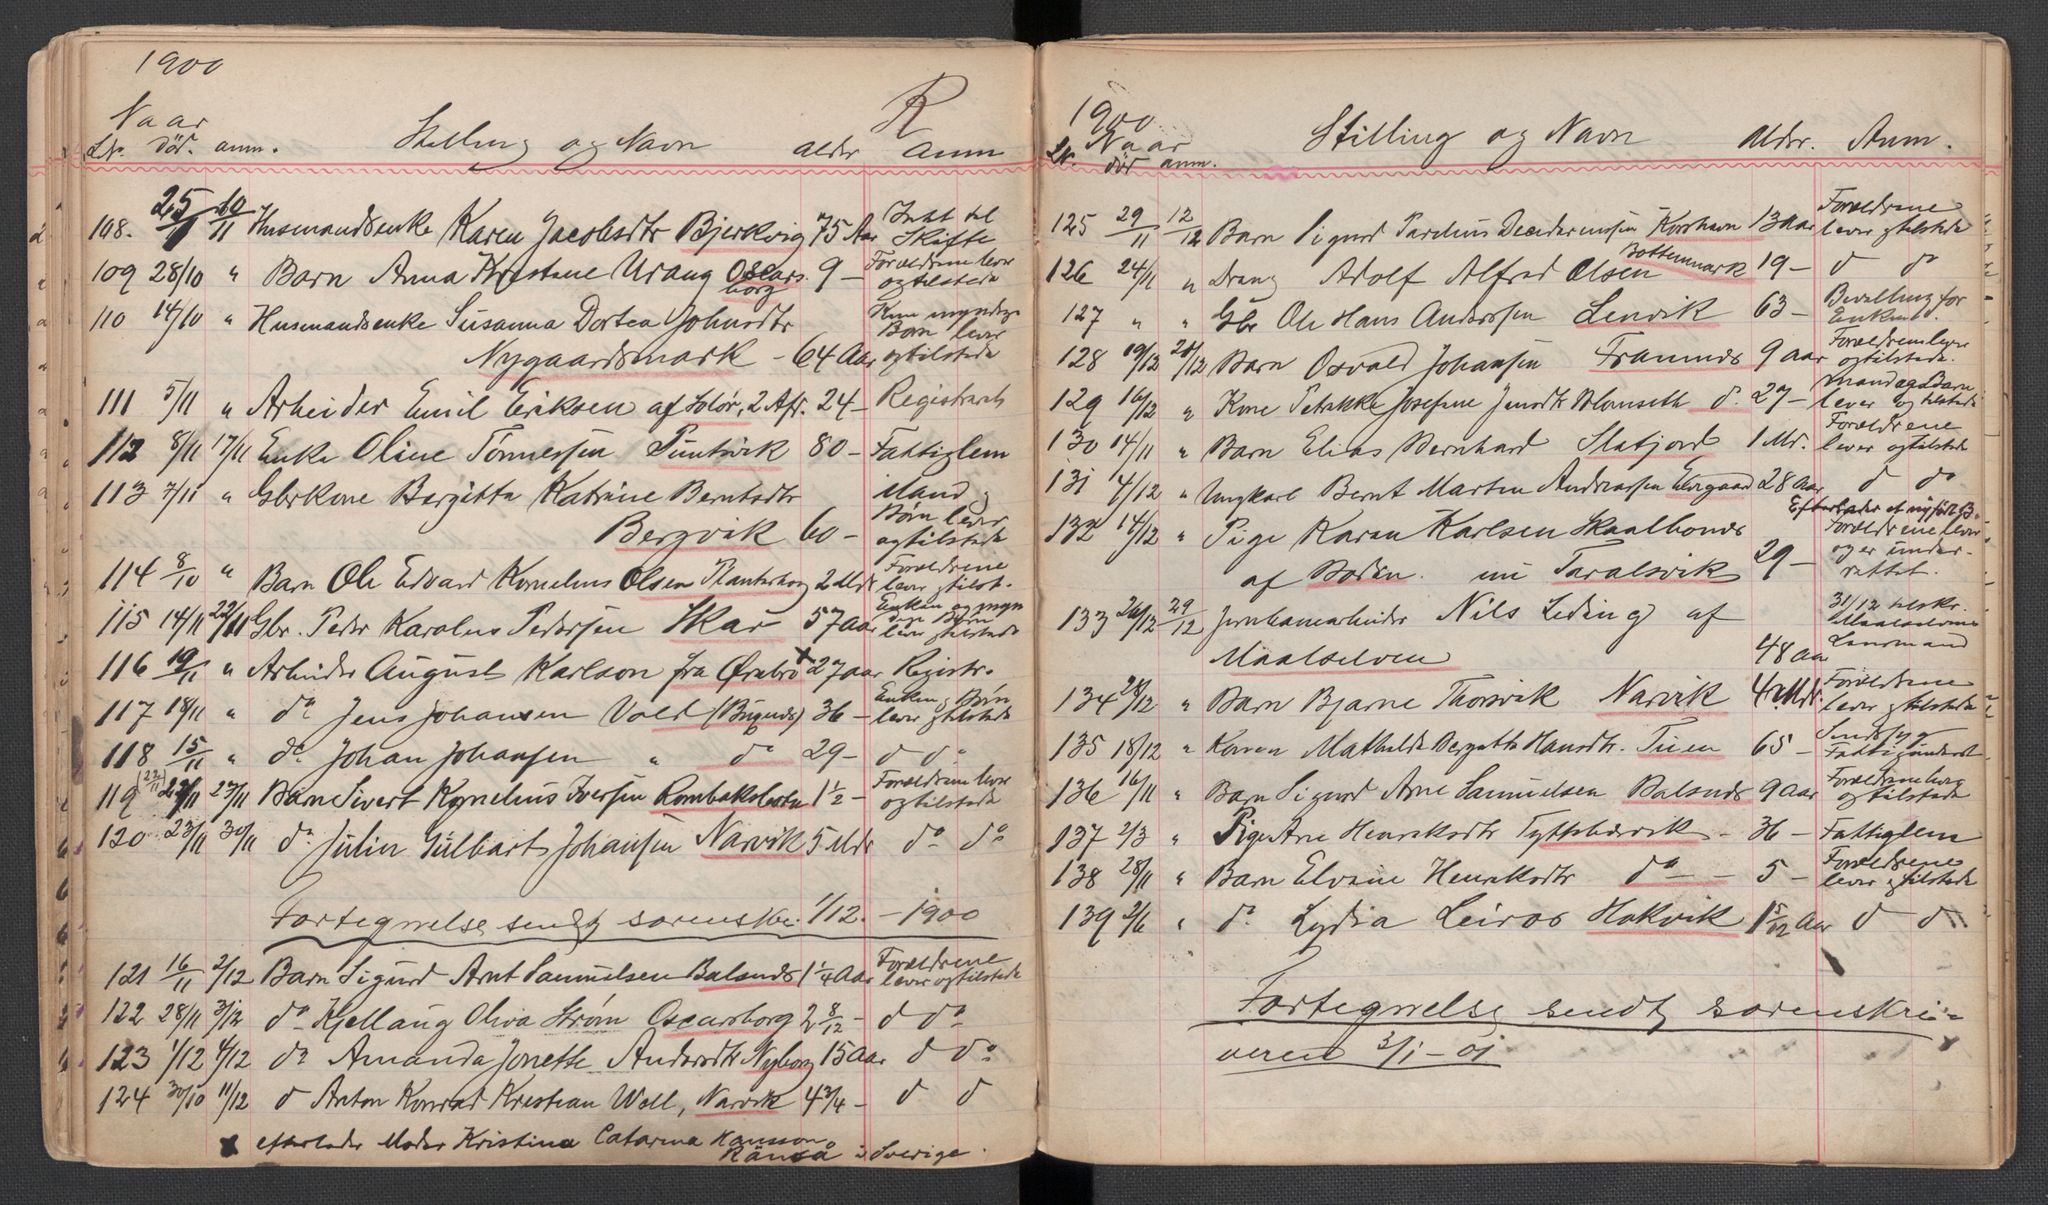 1900
R
Naar
Stilling og Navn
LNo. död. anm. alder anm
108. 25/1 10/11 Husmandsenke Karen Jacobsdtr Bjerkvig 75 Aar Intet til
Skifte
109 28/10 " Barn Anna Kristine Urang Oscars 9 – Forældrene lever
borg ogtilstede
110 14/10 " Husmandsenke Susanna Dortea Johnsdtr Kun myndige
Børn lever
Nygaardsmark - 64 Aar ogtilstede
111 5/11 " Arbeider Emil Eriksen af Solör, 2 Afr. 24 – Registrarets
112 8/11 17/11 Enke Oline Tönnessen Puntsvik 80 – Fattiglem
113 7/11 " Gbrkone Bergitta Katrine Berntsdtr Mand og
Børn lever
Bergvik 60 – ogtilstede
114 8/10 " Barn Ole Edvard Kornelius Olsen Planterhog 2 Mdr Forældrene
lever ogtilst.
115 14/11 22/11 Gbr. Peder Karolus Pedersen Skar 57 Aar Enken og myn
dige Børn
lever ogtilstede
116 19/11 " Arbeider August Karlson fra Ørebro x 27 aar Registr.
117 18/11 " do Jens Johansen Vold 36 – Enken og Børn
lever ogtilstede
118 15/11 " do Johan Johansen " do 29 – do do
119 (22/11) 22/11 23/11 Barn Sivert Kornelius Iversen Rombaksbotn 1 1/2 – Forældrene lever
ogtilstede
120 23/11 30/11 do Julin Gulbart Johansen Narvik 5 Mdr do do
Fortegnelse sendt sorenskr. 1/12. – 1900
121 16/11 2/12 Barn Sigurd Arnt Samuelsen Balsnds 1 1/4 Aar Forældrene
lever ogtilstede
122 28/11 3/12 do Kjellaug Oliva Strøm Oscarsborg 2 8/12 – do do
123 1/12 4/12 do Amanda Jonette Andersdtr Nyborg 15 Aar do do
124 30/10 11/12 do Anton Konrad Kristian Woll, Narvik 4 3/4 – do do
x efterlader Moder Kristina Catarina Hansson
Rånså i Sverige.
1900
Naar
Stilling og Navn
LN. död anm. Alder. Anm.
125 29/11 12/12 Barn Sigurd Parelius Korshavn 13 Aar Forældrene
lever ogtilstede
126 24/11 " Dreng Adolf Alfred Olsen Bottenmark 19 – do do
127 " " Gbr Ole Hans Anderssen Lenvik 63 – Bevilling for
Enken
128 19/12 20/12 Barn Osvald Johansen Framnds 9 aar Forældrene lever
ogtilstede.
129 16/12 " Kone Petrikke Josefine Jensdtr Blomseth d. 27 – Mand og Barn
lever og tilstede
130 14/11 " Barn Elias Bernhard Slafjord 1 Mr. Forældrene
lever ogtilstede
131 4/12 " Ungkarl Bernt Martin Andreassen Elvegaard 28 Aar do do
Efterlader et nyfödt B.
132 14/12 " Pige Karen Karlsen Skaalbones Forældrene lever
og er under-
af Bodin. nu Taralsvik 29 – rettet.
133 26/12 29/12 Jernbanearbeider Nils Leding af 31/12 tilskr.
Maalselvens
Maalselven 48 Aar Lensmand
134 28/12 " Barn Bjarne Thorsvik Narvik 4 Mdr Forældrene
lever ogtilstede
135 18/12 " Konen Mathilde Bergette Hansdtr. Tuen 65 – Sindssyg
Fattigunderst
136 16/11 " Barn Sigurd Arne Samuelsen Balsnds 9 aar Forældrene lever
ogtilstede
137 2/3 " Pige Ane Henriksdtr Tyttebærvik – 36 – Fattiglem
138 28/11 " Barn Elvine Henriksdtr do – – 5 – Forældrene
lever ogtilstede
139 2/6 " do Lydia Leiros Hakvik 1 5/12 Aar do do
Fortegnelse sendt sorenskri-
veren 3/1 – 01